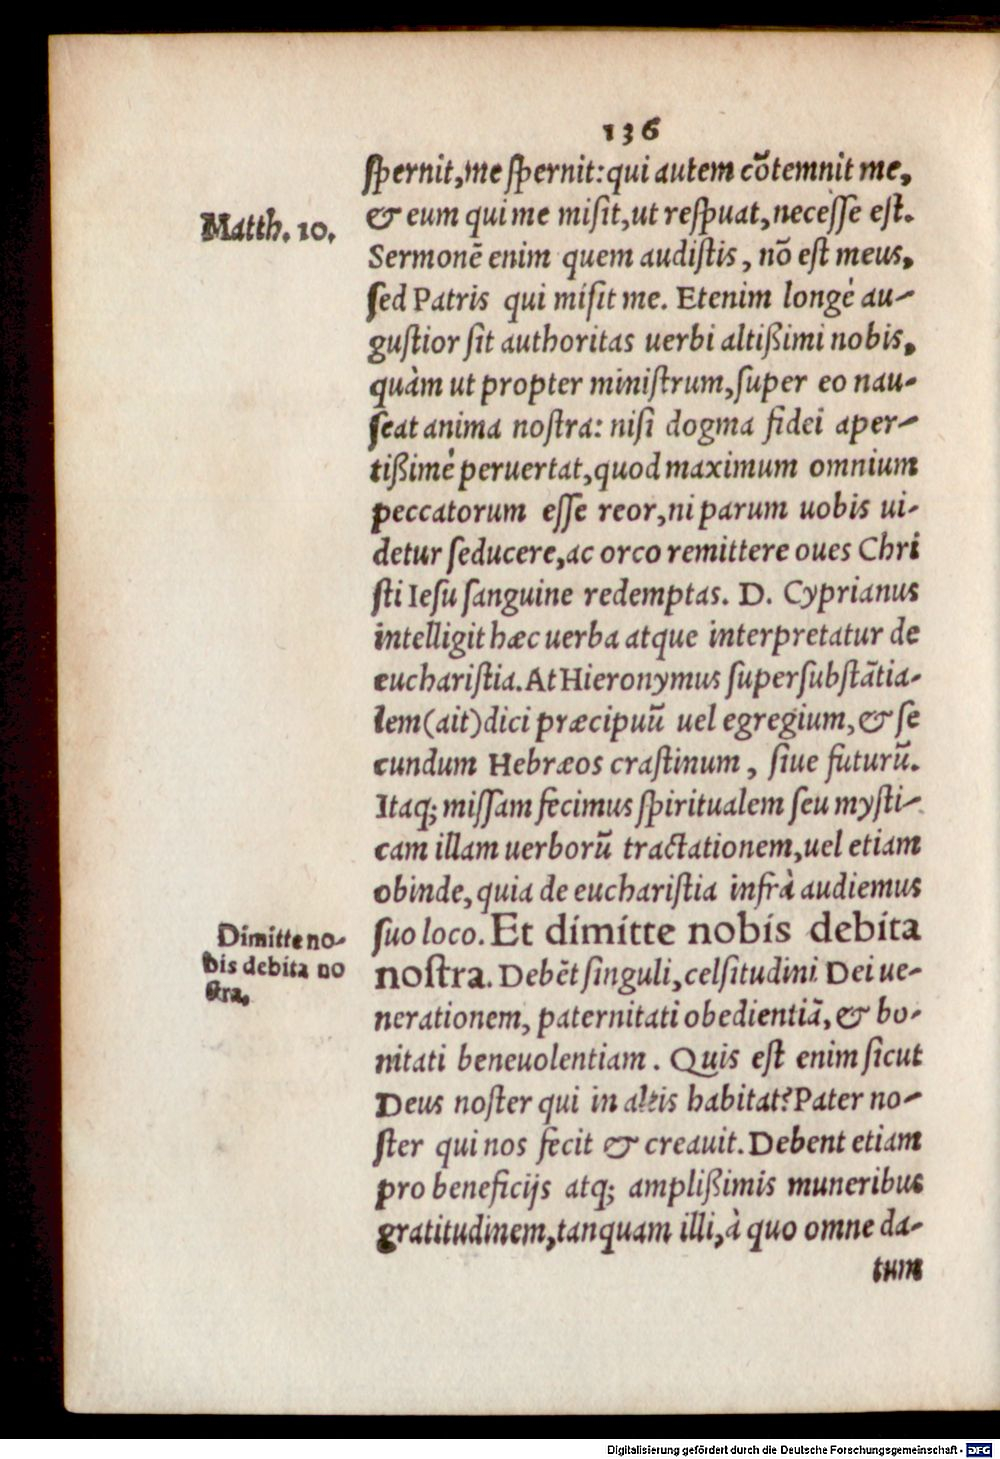 136
spernit, me spernit: qui autem cōtemnit me,
& eum qui me misit, ut respuat, necesse est.
Matth. 10.
Sermonē enim quem audistis, nō est meus,
sed Patris qui misit me. Etenim longè au-
gustior sit authoritas uerbi altißimi nobis,
quàm ut propter ministrum, super eo nau-
seat anima nostra: nisi dogma fidei aper-
tißimè peruertat, quod maximum omnium
peccatorum esse reor, ni parum uobis ui-
detur seducere, ac orco remittere oues Chri
sti Iesu sanguine redemptas. D. Cyprianus
intelligit hæc uerba atque interpretatur de
eucharistia. At Hieronymus supersubstātia-
lem (ait) dici præcipuū uel egregium, & se
cundum Hebræos crastinum, siue futurū.
Itaq; missam fecimus spiritualem seu mysti-
cam illam uerborū tractationem, uel etiam
obinde, quia de eucharistia infrà audiemus
suo loco. Et dimitte nobis debita
nostra. Debēt singuli, celsitudini Dei ue-
Dimitte no-
bis debita no
stra.
nerationem, paternitati obedientiā, & bo-
nitati beneuolentiam. Quis est enim sicut
Deus noster qui in altis habitat? Pater no-
ster qui nos fecit & creauit. Debent etiam
pro beneficijs atq; amplißimis muneribus
gratitudinem, tanquam illi, à quo omne da-
tum
Digitalisierung gefördert durch die Deutsche Forschungsgemeinschaft - DFG